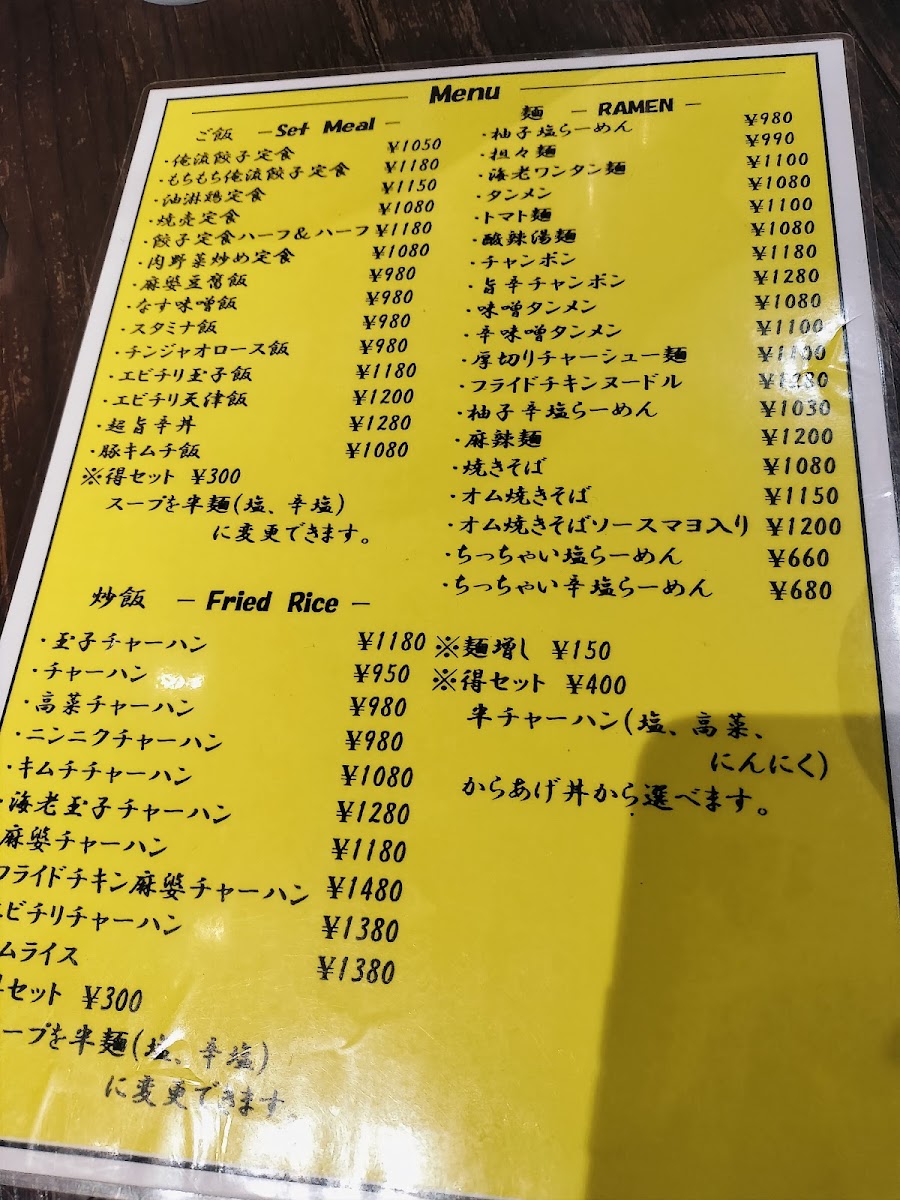 Menu
ご飯 - Set Meal -
・俺流餃子定食 ¥1050
・もちもち俺流餃子定食 ¥1180
・油淋鶏定食 ¥1150
・焼売定食 ¥1080
・餃子定食ハーフ&ハーフ ¥1180
・肉野菜炒め定食 ¥1080
・麻婆豆腐飯 ¥980
・なす味噌飯 ¥980
・スタミナ飯 ¥980
・チンジャオロース飯 ¥980
・エビチリ玉子飯 ¥1180
・エビチリ天津飯 ¥1200
・超旨辛丼 ¥1280
・豚キムチ飯 ¥1080
※得セット ¥300
スープを半麺(塩、辛塩)
に変更できます。
炒飯 - Fried Rice -
・玉子チャーハン ¥1180
・チャーハン ¥950
・高菜チャーハン ¥980
・ニンニクチャーハン ¥980
・キムチチャーハン ¥1080
・海老玉子チャーハン ¥1280
麻婆チャーハン ¥1180
フライドチキン麻婆チャーハン ¥1480
エビチリチャーハン ¥1380
ムライス ¥1380
セット ¥300
ープを半麺(塩、辛塩)
に変更できます。
麺 - RAMEN -
・柚子塩らーめん ¥980
・担々麺 ¥990
・海老ワンタン麺 ¥1100
・タンメン ¥1080
・トマト麺 ¥1100
・酸辣湯麺 ¥1080
・チャンポン ¥1180
・旨辛チャンポン ¥1280
・味噌タンメン ¥1080
・辛味噌タンメン ¥1100
・厚切りチャーシュー麺 ¥1100
・フライドチキンヌードル ¥1280
・柚子辛塩らーめん ¥1030
・麻辣麺 ¥1200
・焼きそば ¥1080
・オム焼きそば ¥1150
・オム焼きそばソースマヨ入り ¥1200
・ちっちゃい塩らーめん ¥660
・ちっちゃい辛塩らーめん ¥680
※麺増し ¥150
※得セット ¥400
半チャーハン(塩、高菜、
にんにく)
からあげ丼から選べます。